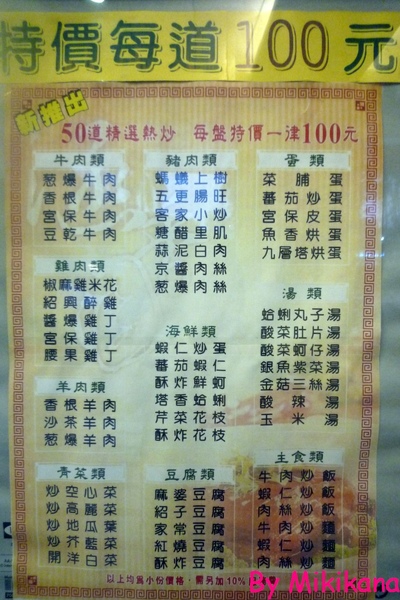 特價每道100元
新推出
50道精選熱炒 每盤特價一律100元
牛肉類
葱爆牛肉
香根牛肉
宮保牛肉
豆乾牛肉
雞肉類
椒麻雞米花
紹興醉雞
醬爆雞丁
宮保雞丁
腰果雞丁
羊肉類
香根羊肉
沙茶羊肉
葱爆羊肉
青菜類
炒空心菜
炒高麗菜
炒地瓜葉
炒芥藍菜
開洋白菜
豬肉類
螞蟻上樹
五更腸旺
客家小炒
糖醋里肌
蒜泥白肉
京醬肉絲
葱爆肉絲
海鮮類
蝦仁炒蛋
番茄蝦仁
酥炸鮮蚵
塔香蛤蜊
芹菜花枝
酥炸花枝
豆腐類
麻婆豆腐
紹子豆腐
家常豆腐
紅燒豆腐
酥炸豆腐
蛋類
菜脯蛋
番茄炒蛋
宮保皮蛋
魚香烘蛋
九層塔烘蛋
湯類
蛤蜊丸子湯
酸菜肚片湯
酸菜蚵仔湯
銀魚紫菜湯
金菇三絲湯
酸辣湯
玉米湯
主食類
牛肉炒飯
蝦仁炒飯
肉絲炒飯
牛肉炒麵
蝦仁炒麵
肉絲炒麵
以上均為小份價格，需另加10%
By Mikikana